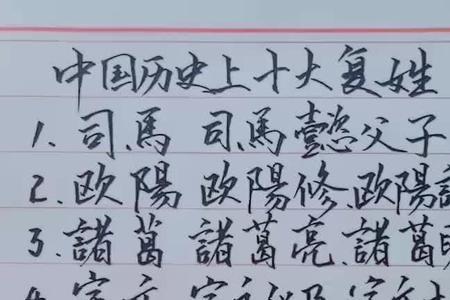 中国历史上十大复姓
1、司馬 司馬懿父子
2、欧陽 欧陽修、欧陽
3、諸葛 諸葛亮、諸葛
4、宇文